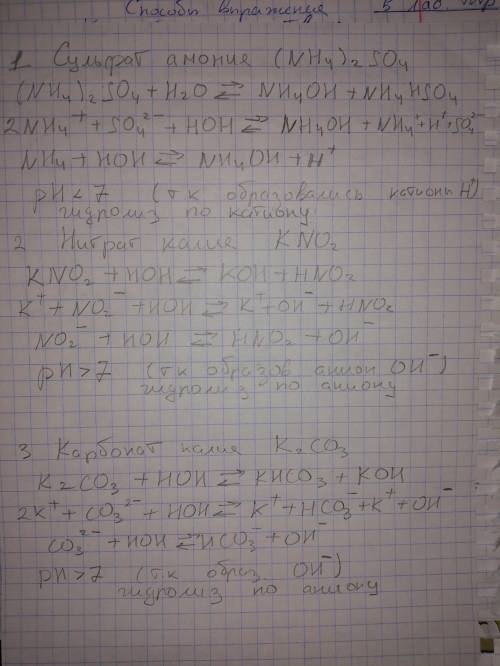 Способы выражение
в лаб
1 Сульфат амония (NH4)2SO4
(NH4)2SO4 + H2O ⇄ NH4OH + NH4HSO4
2NH4⁺ + SO4²⁻ + HOH ⇄ NH4OH + NH4⁺ + H⁺ + SO4²⁻
NH4 + HOH ⇄ NH4OH + H⁺
pH < 7 (т.к образовались катионы H⁺)
гидролиз по катиону
2 Нитрат калия KNO2
KNO2 + HOH ⇄ KOH + HNO2
K⁺ + NO2⁻ + HOH ⇄ K⁺ + OH⁻ + HNO2
NO2⁻ + HOH ⇄ HNO2 + OH⁻
pH > 7 (т.к образов анион OH⁻)
гидролиз по аниону
3 Карбонат калия K2CO3
K2CO3 + HOH ⇄ KHCO3 + KOH
2K⁺ + CO3²⁻ + HOH ⇄ K⁺ + HCO3⁻ + K⁺ + OH⁻
CO3²⁻ + HOH ⇄ HCO3⁻ + OH⁻
pH > 7 (т.к образ OH⁻)
гидролиз по аниону